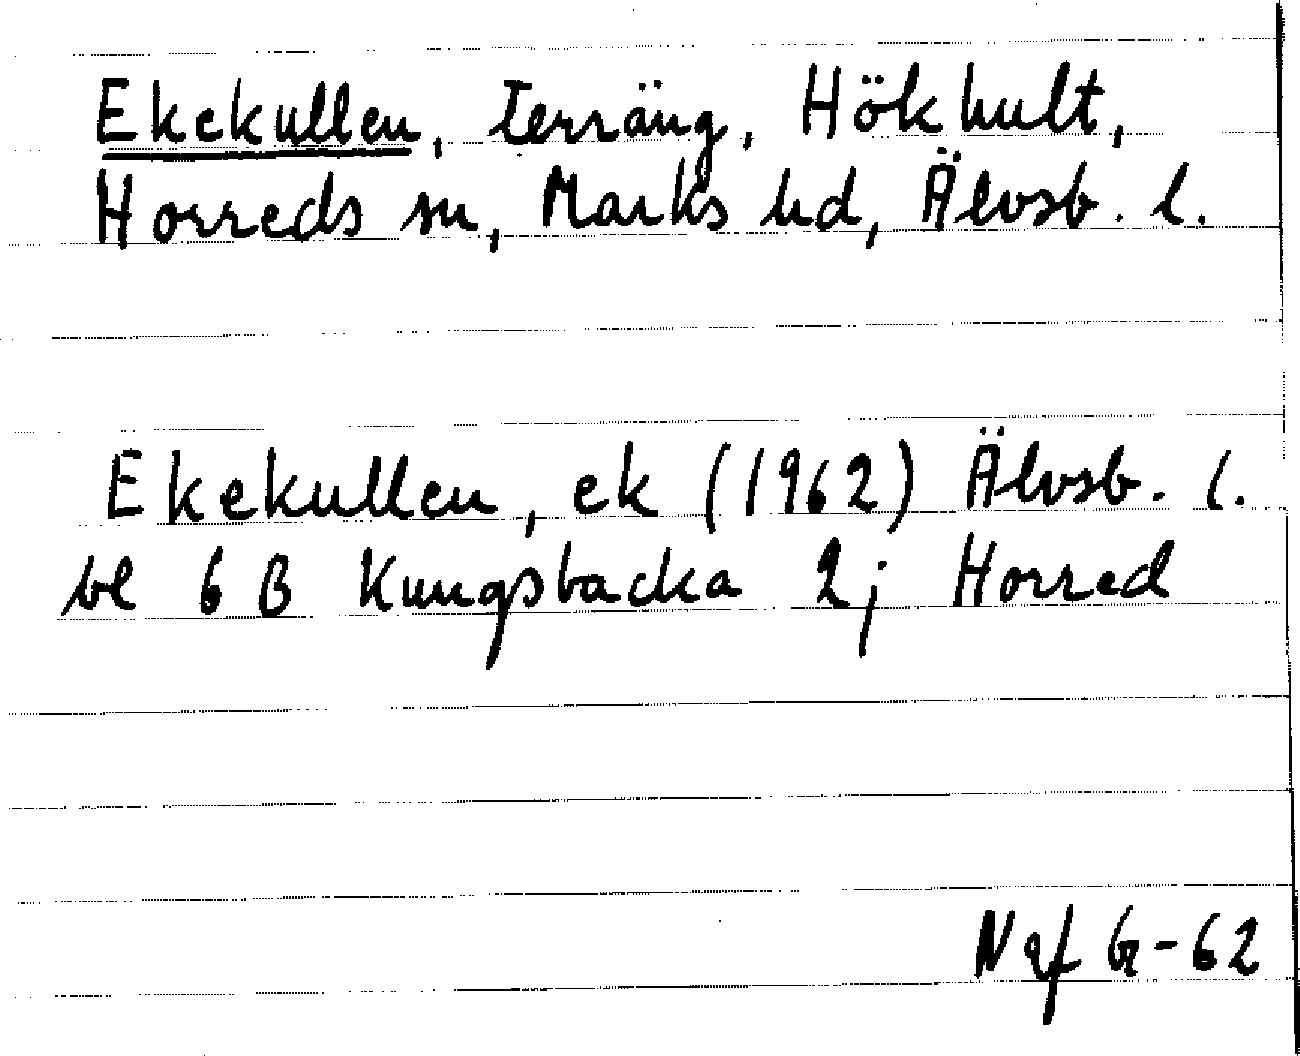 Ekekullen, terräng, Hökhult,
Horreds sn, Marks hd, Älvsb. l.
Ekekullen, ek (1962) Älvsb. l.
bl 6 B Kungsbacka 2j Horred
-62